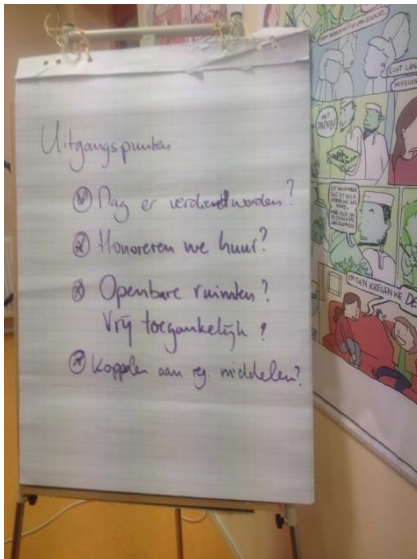 Uitgangspunten
Mag er verdiend worden?
Honoreren we huur?
Openbare ruimten?
Vrij toegankelijk?
Koppelen aan reg. middelen?
MET
EN GEN KREGEN WE DE